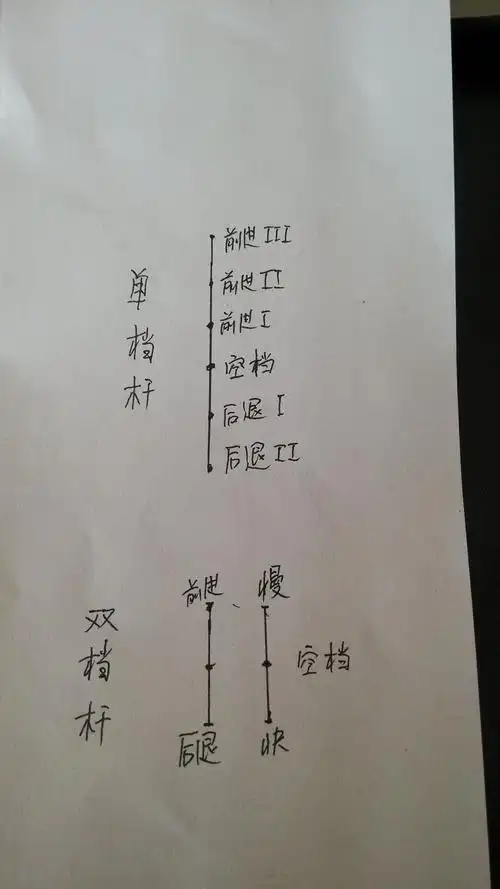 单档杆
前进III
前进II
前进I
空档
后退I
后退II
双档杆
前进、慢
空档
后退 快